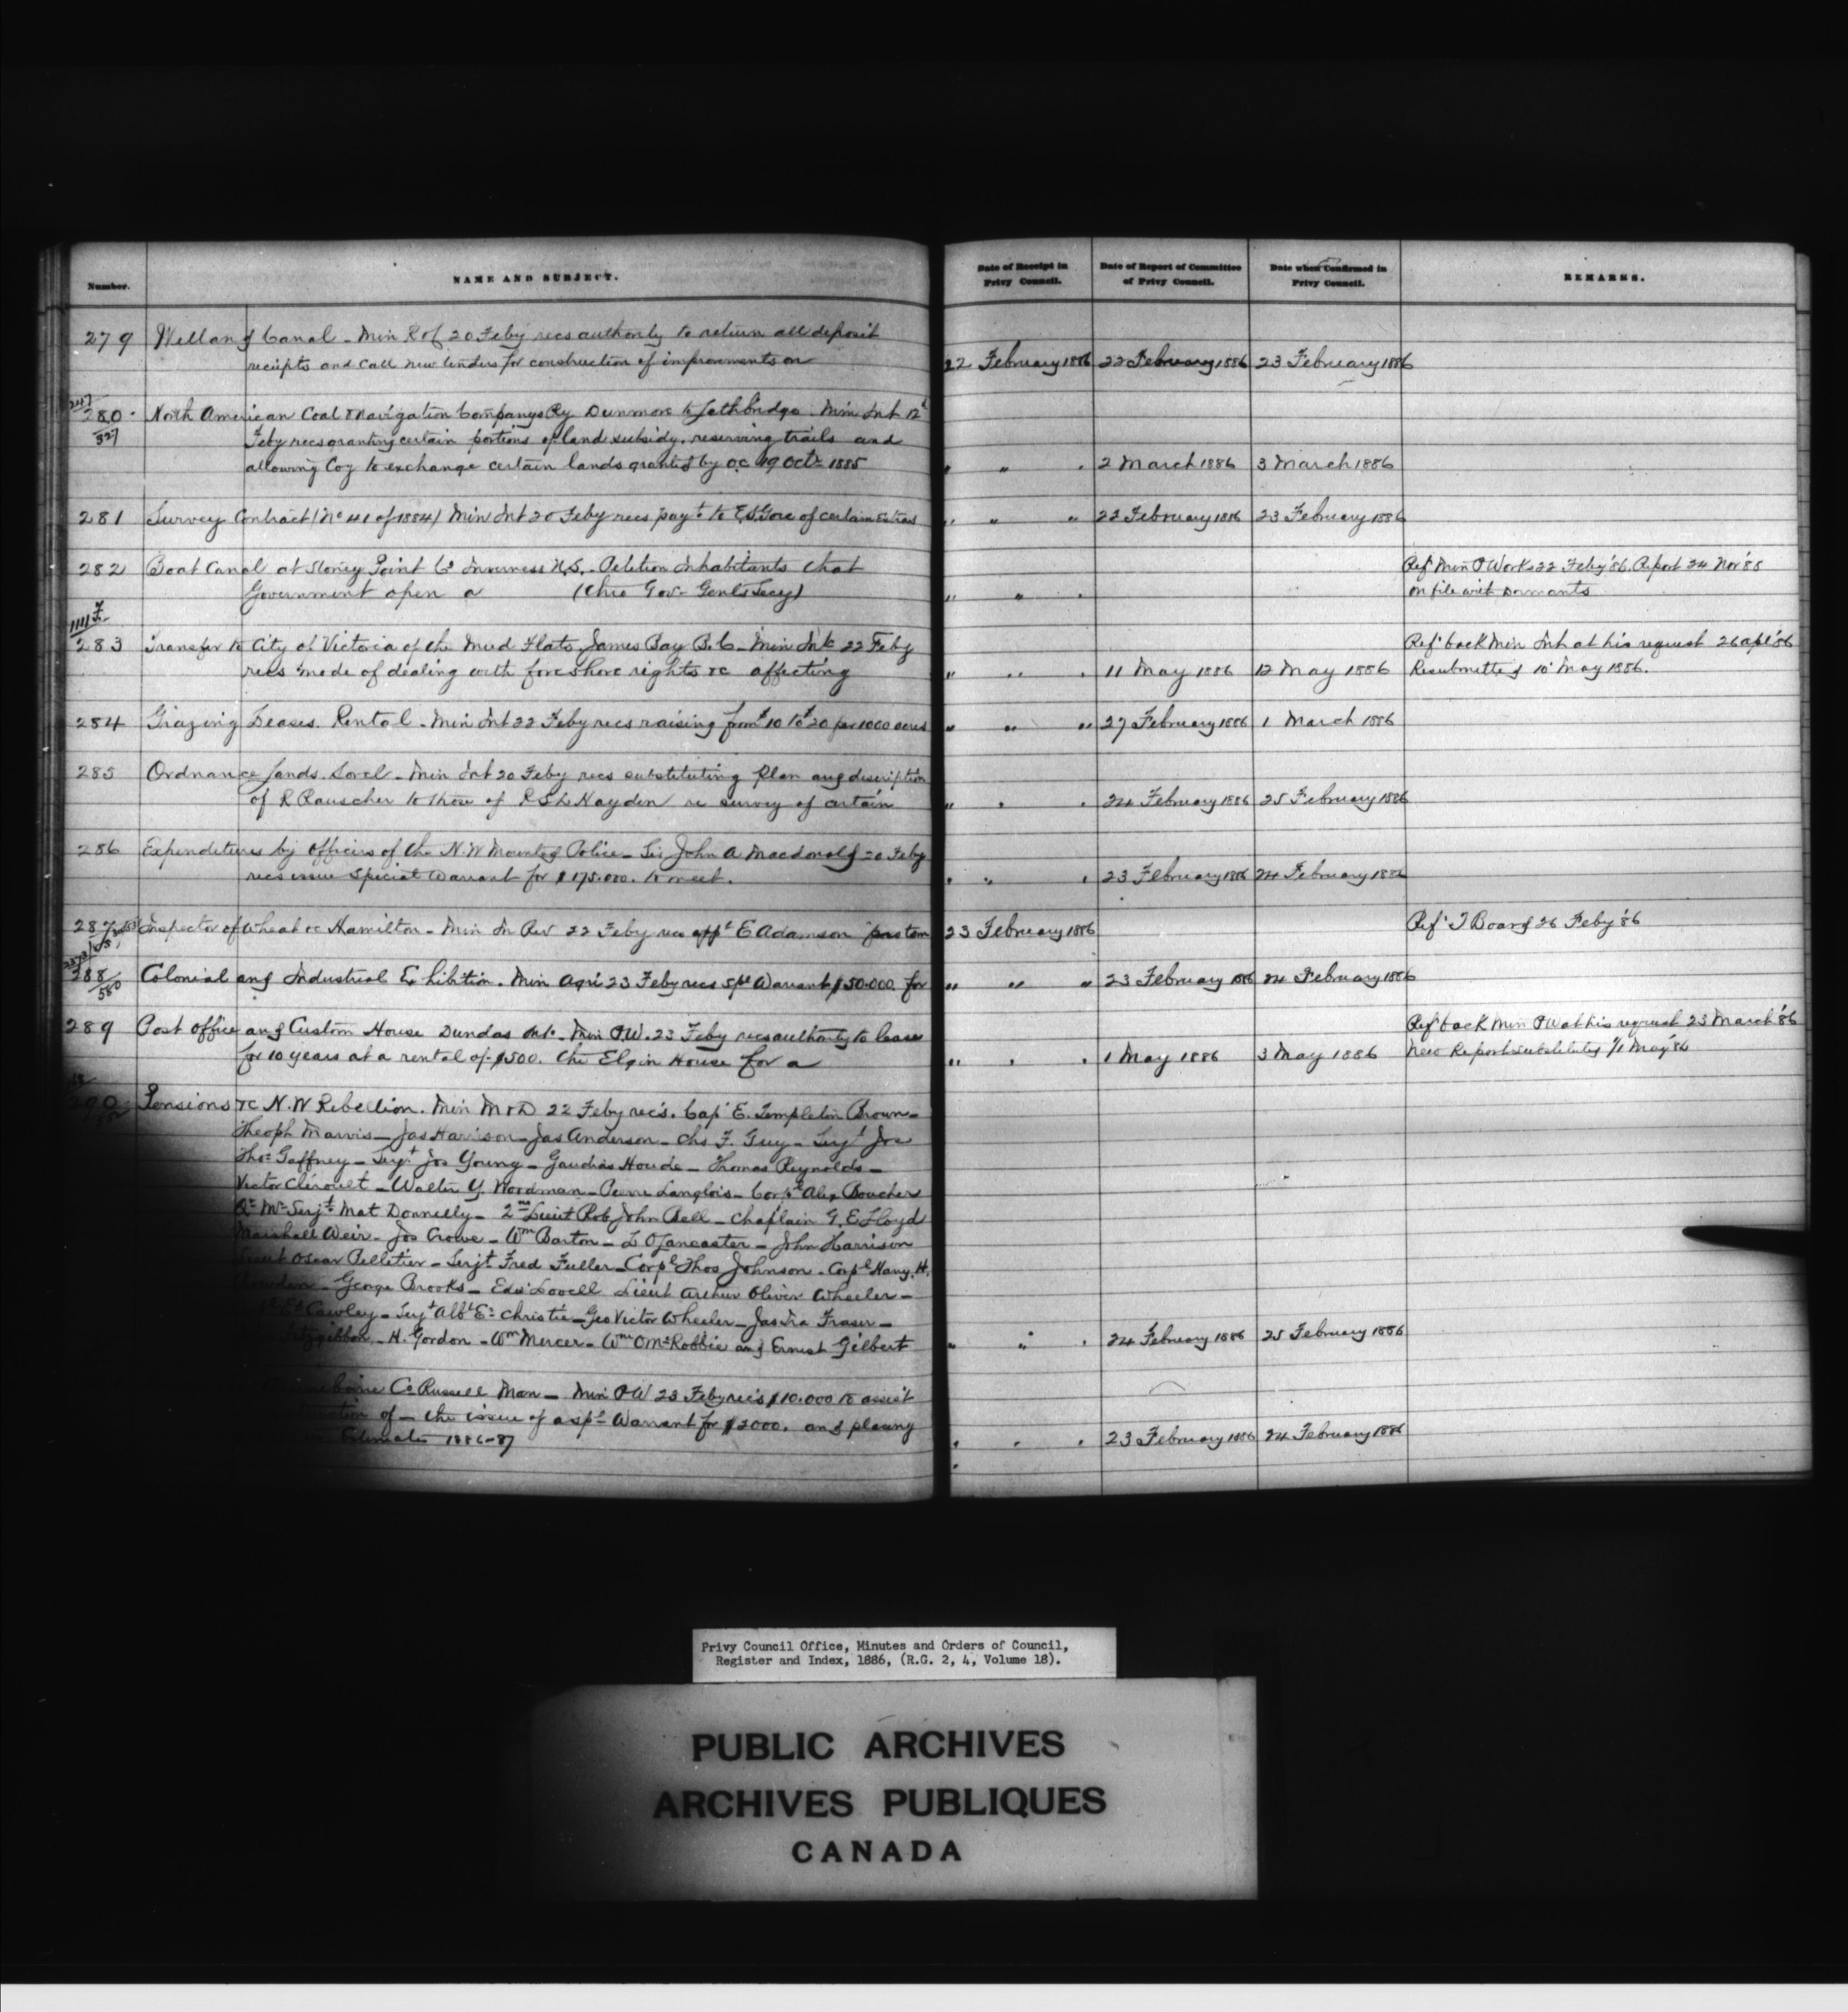 Number.
NAME AND SUBJECT.
Date of Receipt in Privy Council.
Date of Report of Committee of Privy Council.
Date when Confirmed in Privy Council.
REMARKS.
279 Welland Canal - Min R of 20 Feby recs authority to return all deposit
receipts and call new tenders for construction of improvements on
22 February 1886 22 February 1886 23 February 1886
247
280 North American Coal & Navigation Companys Ry Dunmore to Lethbridge. Min Int 12
327
Feby recs granting certain portions of land subsidy, reserving trails and
allowing Coy to exchange certain lands granted by O.C. 19 Oct 1885
" " " 2 March 1886 3 March 1886
281 Survey Contract (No 41 of 1884) Min Int 20 Feby recs payt to E.S. Gore of certain Extras
" " " 22 February 1886 23 February 1886
282 Boat Canal at Stoney Point Co Inverness N.S. - Petition Inhabitants that
Ref Min P Works 22 Feby '86. Report 24 Nov '85
Government open a (thro Gov - Genls Secy)
" " "
on file with Dormants
283 Transfer to City of Victoria of the Mud Flats, James Bay B.C - Min Int 22 Feby
Refd back Min Int at his request 26 apl '86
recs mode of dealing with foreshore rights &c affecting
" " " 11 May 1886 12 May 1886 Resubmitted 10 May 1886.
284 Grazing Leases. Rental - Min Int 22 Feby recs raising from $10 to $20 per 1000 acres
" " " 27 February 1886 1 March 1886
285 Ordnance Lands. Sorel - Min Int 20 Feby recs substituting plan and description
of R Rauscher to those of R S L Hayden re survey of certain
" " " 24 February 1886 25 February 1886
286 Expenditures by officers of the N.W Mounted Police - Sir John A Macdonald 20 Feby
recs issue Special Warrant for $175.000. to meet.
" " " 23 February 1886 24 February 1886
287 Inspector of Wheat &c Hamilton - Min In Rev 22 Feby recs appt E Adamson pro tem
23 February 1886
Refd T Board 26 Feby '86
288 Colonial and Industrial Exhibition. Min Agri 23 Feby recs spl Warrant $50.000. for
580
" " " 23 February 1886 24 February 1886
289 Post Office and Custom House Dundas Ont. - Min P.W. 23 Feby recs authority to lease
Refd back Min P W at his request 23 March '86
for 10 years at a rental of $500. the Elgin House for a
" " " 1 May 1886 3 May 1886 New Report substituted 1 May '86
290 Pensions &c N.W Rebellion. Min M & D 22 Feby recs. Capt E. Templeton Brown -
Theoph Marvis - Jas Harrison - Jas Anderson - Chs F. Guy - Serjt Jos
Thos Gaffney - Serjt Jos Young - Gaudias Houde - Thomas Reynolds -
Victor Clérouet - Walter Y. Woodman - Pierre Langlois - Corpl Alex Boucher
Qr Mr Serjt Mat Donnelly - 2nd Lieut Rob John Bell - Chaplain G. E Lloyd
Marshall Weir - Jos Crowe - Wm Barton - L O Lancaster - John Harrison
Lieut Oscar Pelletier - Serjt Fred Fuller - Corpl Thos Johnson - Corpl Harry. H.
- George Brooks - Edw Lovell Lieut Arthur Oliver Wheeler -
Cawley - Serjt Albt E. Christie - Geo Victor Wheeler - Jas Ira Fraser -
- H. Gordon - Wm Mercer - Wm O McRobbie and Ernest Gilbert
" " " 24 February 1886 25 February 1886
Co Russell Man - Min P W 23 Feby recs $10.000 to assist
of - the issue of a spl Warrant for $2000. and placing
Estimates 1886-87
" " " 23 February 1886 24 February 1886
Privy Council Office, Minutes and Orders of Council,
Register and Index, 1886, (R.G. 2, 4, Volume 18).
PUBLIC ARCHIVES
ARCHIVES PUBLIQUES
CANADA